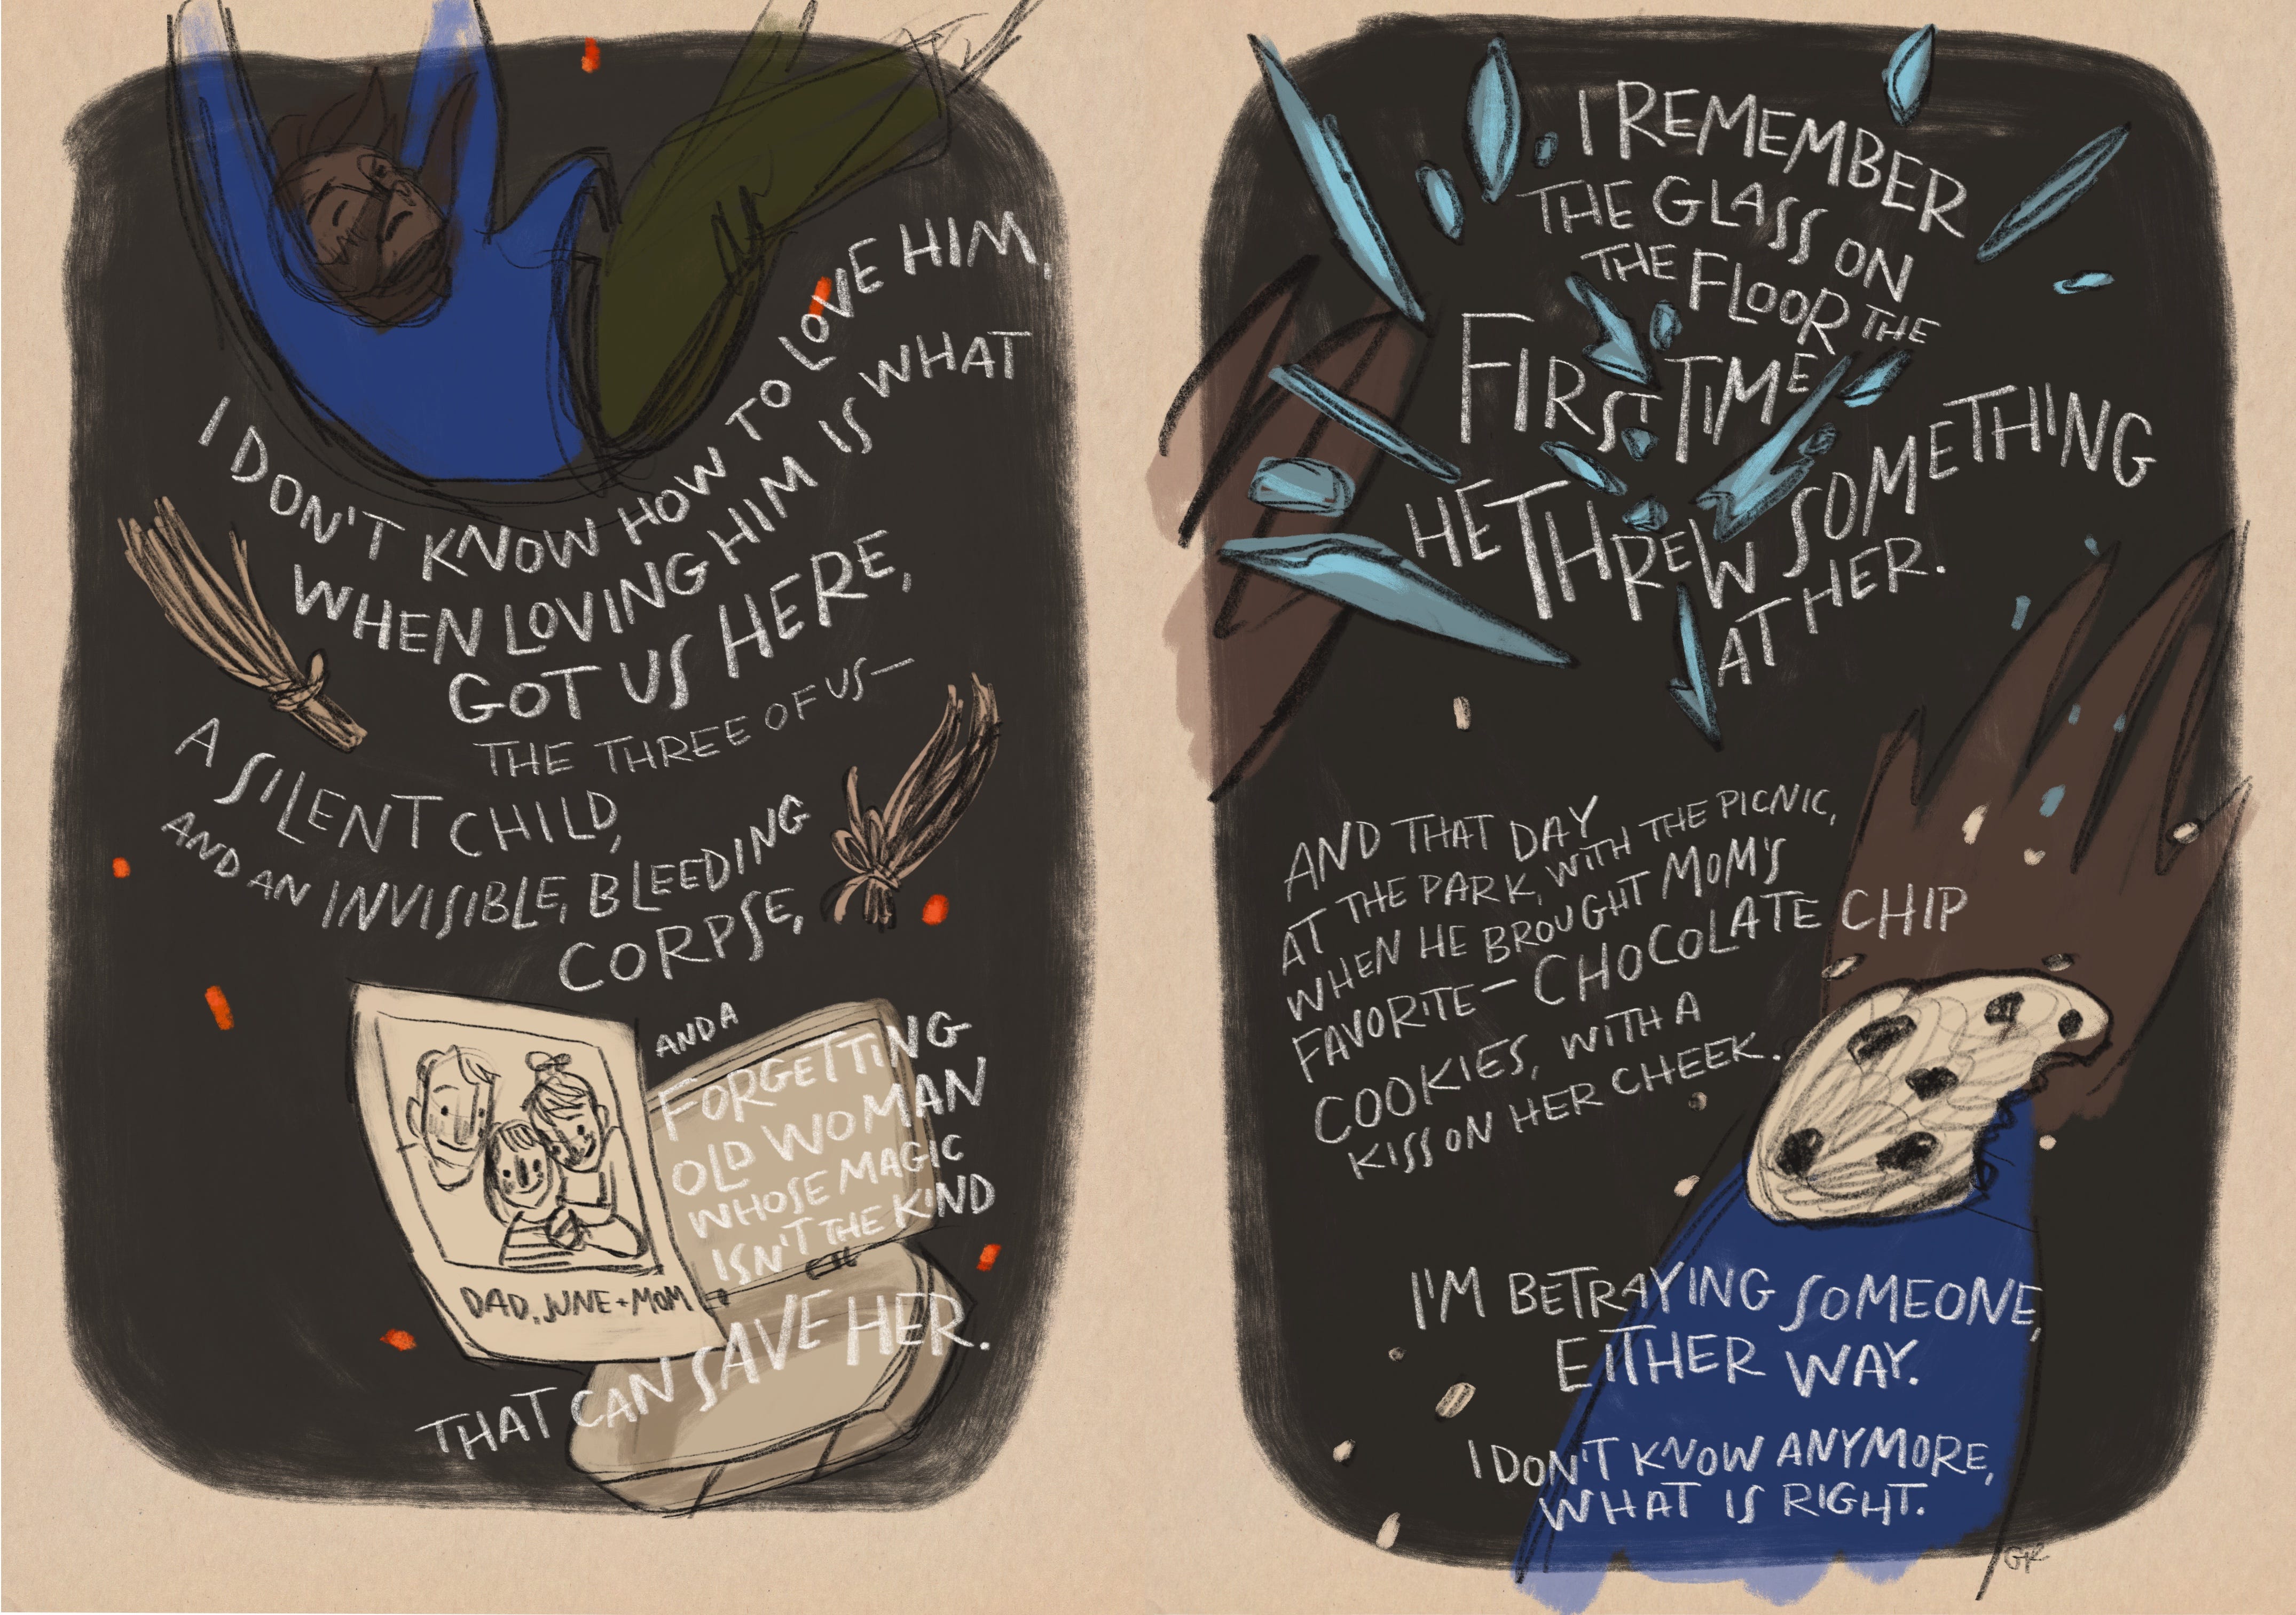 I DON'T KNOW HOW TO LOVE HIM,
WHEN LOVING HIM IS WHAT
GOT US HERE,
THE THREE OF US—
A SILENT CHILD,
AND AN INVISIBLE, BLEEDING
CORPSE,
AND A
FORGETTING
OLD WOMAN
WHOSE MAGIC
ISN'T THE KIND
THAT CAN SAVE HER.
DAD, JUNE + MOM
I REMEMBER
THE GLASS ON
THE FLOOR THE
FIRST TIME
HE THREW SOMETHING
AT HER.
AND THAT DAY
AT THE PARK, WITH THE PICNIC,
WHEN HE BROUGHT MOM'S
FAVORITE— CHOCOLATE CHIP
COOKIES, WITH A
KISS ON HER CHEEK.
I'M BETRAYING SOMEONE,
EITHER WAY.
I DON'T KNOW ANYMORE,
WHAT IS RIGHT.
GK